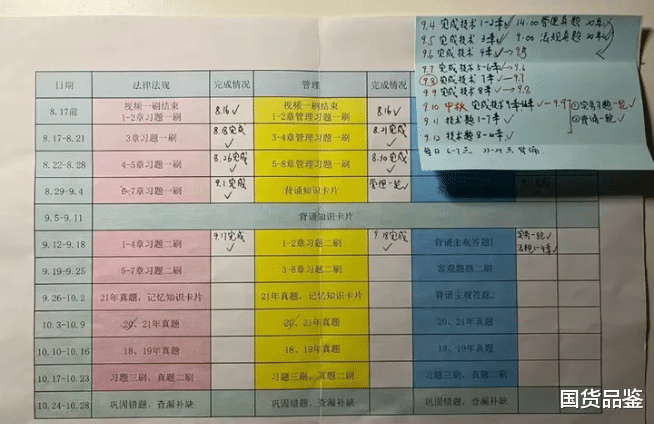 9.4 完成技术 1-2章✓ 14:00管理真题
9.5 完成技术 3章✓ 9:00 法规真题
9.6 完成技术 4章✓→9.5
9.7 完成技术 5-6章✓→9.6
9.8 完成技术 7章✓→9.7
9.9 完成技术 8章✓→9.8
9.10 中秋 完成技术 →9.9
9.11 技术题 1-7章✓
9.12 技术题 8-10章✓
①实务习题一轮✓
②背诵一轮✓
日期 法律法规 完成情况 管理 完成情况
8.17前 视频一刷结束 8.16✓ 视频一刷结束 8.16✓
1-2章习题一刷 1-2章管理习题一刷
8.17-8.21 3章习题一刷 8.18完成✓ 3-4章管理习题一刷 8.21完成✓
8.22-8.28 4-5章习题一刷 8.26完成✓ 5-8章管理习题一刷 8.30完成✓
8.29-9.4 6-7章习题一刷 9.1完成✓ 背诵知识卡片 管理一轮✓
9.5-9.11 背诵知识卡片
9.12-9.18 1-4章习题二刷 9.17完成✓ 1-2章习题二刷 9.18完成✓ 背诵主观答题1 实务一轮✓
法规1-4章✓
9.19-9.25 5-7章习题二刷 3-8章习题二刷 客观题题二刷
9.26-10.2 21年真题、记忆知识卡片 21年真题、记忆知识卡片 背诵主观答题2
10.3-10.9 20、21年真题 20、21年真题 20、21年真题
10.10-10.16 18、19年真题 18、19年真题 18、19年真题
10.17-10.23 习题三刷、真题二刷 习题三刷、真题二刷 习题三刷、真题二刷
10.24-10.28 巩固错题、查漏补缺 巩固错题、查漏补缺 巩固错题、查漏补缺
国货品鉴